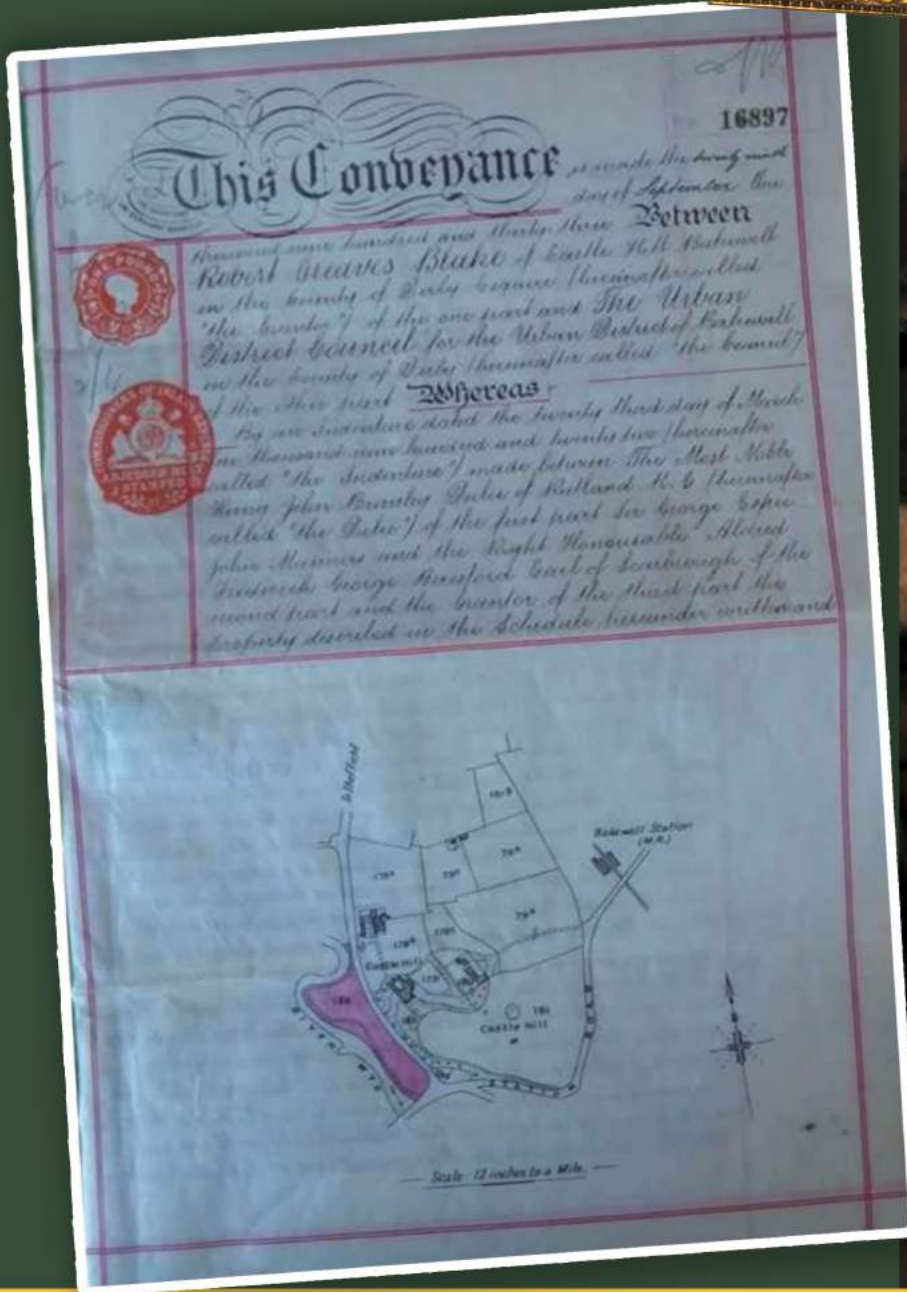 16897
This Conveyance is made the twenty ninth
day of September One
thousand nine hundred and thirty three Between
Robert Greaves Blake of Castle Hill Bakewell
in the County of Derby Esquire (hereinafter called
"the Grantor") of the one part and The Urban
District Council for the Urban District of Bakewell
in the County of Derby (hereinafter called "the Council")
of the other part Whereas
By an Indenture dated the twenty third day of March
one thousand nine hundred and twenty two (hereinafter
called "the Indenture") made between The Most Noble
Henry John Brinsley Duke of Rutland K.G. (hereinafter
called "the Duke") of the first part Sir George Espec
John Manners and the Right Honourable Aldred
Frederick George Beresford Earl of Scarbrough of the
second part and the Grantor of the third part the
property described in the Schedule hereunder written and
To Sheffield
Bakewell Station
(M.R.)
Castle Hill
Castle Hill
RIVER WYE
STATION
ROAD
Scale 12 inches to a Mile.